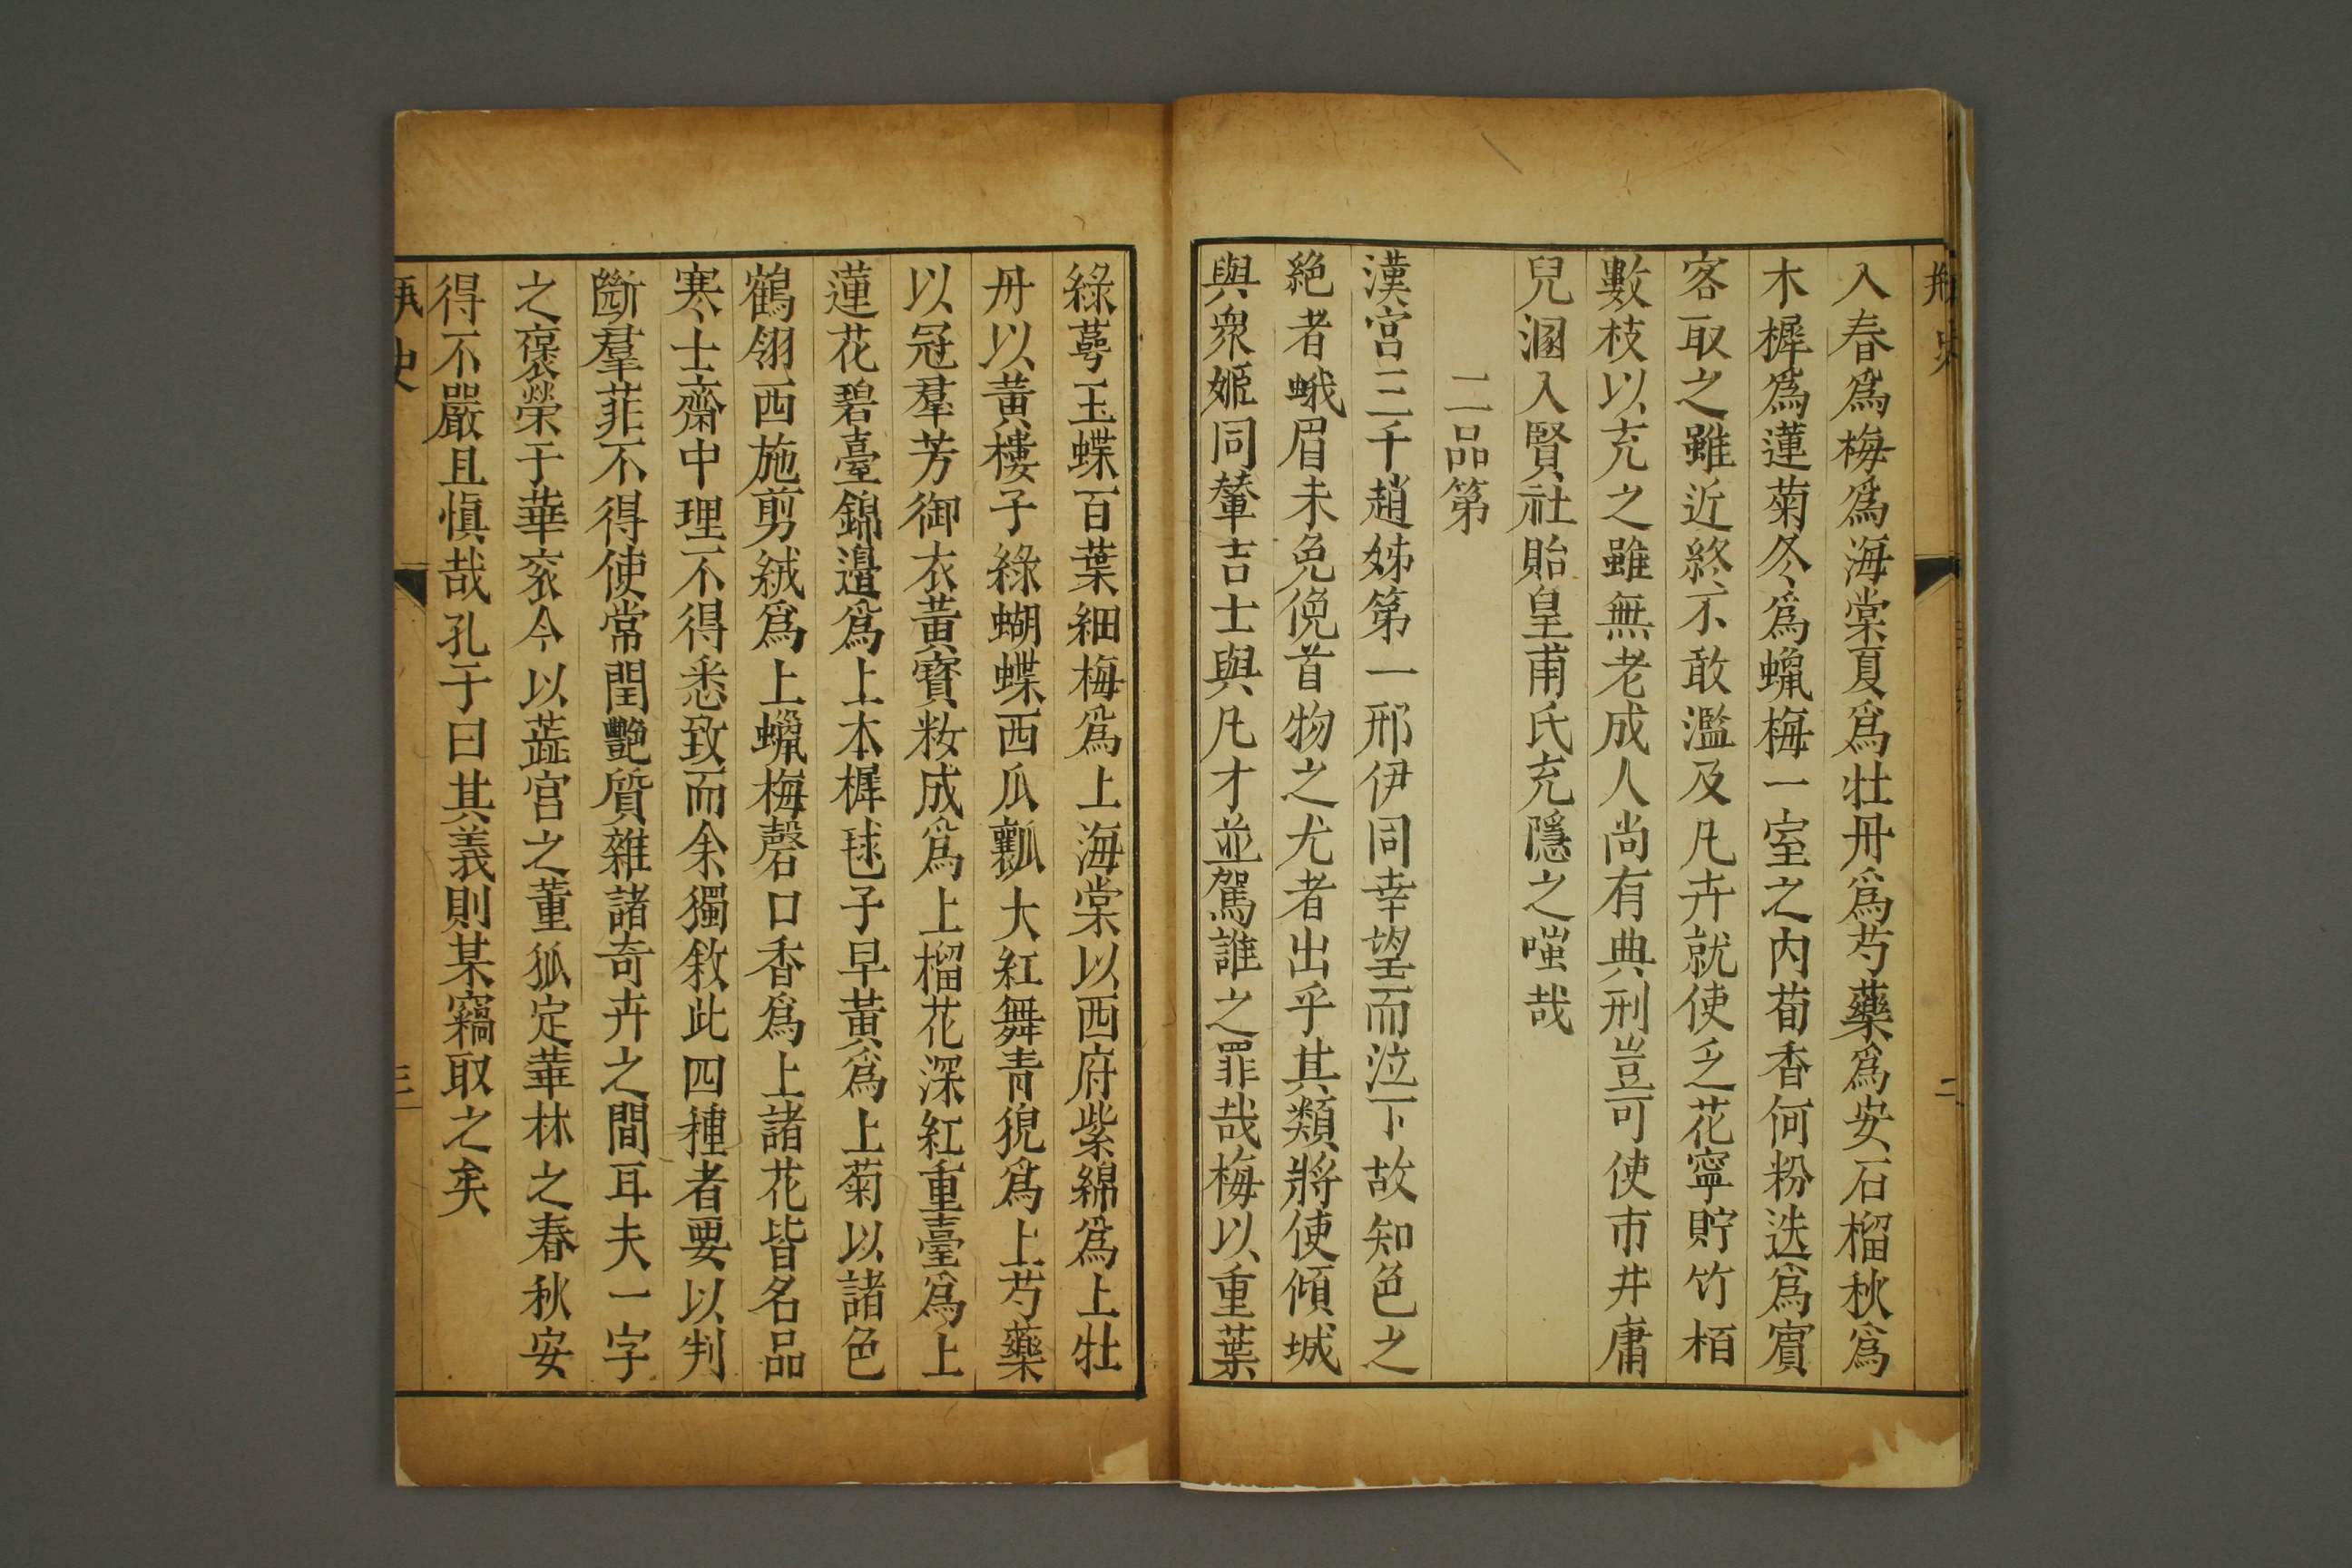 瓶史
二
入春爲梅爲海棠夏爲牡丹爲芍藥爲安石榴秋爲
木樨爲蓮菊冬爲蠟梅一室之內荀香何粉迭爲賓
客取之雖近終不敢濫及凡卉就使乏花寧貯竹栢
數枝以充之雖無老成人尚有典刑豈可使市井庸
兒溷入賢社貽皇甫氏充隱之嗤哉
二品第
漢宮三千趙姊第一邢伊同幸望而泣下故知色之
絕者蛾眉未免俛首物之尤者出乎其類將使傾城
與衆姬同輦吉士與凡才並駕誰之罪哉梅以重葉
綠萼玉蝶百葉緗梅爲上海棠以西府紫綿爲上牡
丹以黃樓子綠蝴蝶西瓜瓤大紅舞青猊爲上芍藥
以冠羣芳御衣黃寶粧成爲上榴花深紅重臺爲上
蓮花碧臺錦邊爲上木樨毬子早黃爲上菊以諸色
鶴翎西施剪絨爲上蠟梅磬口香爲上諸花皆名品
寒士齋中理不得悉致而余獨敘此四種者要以判
斷羣菲不得使常閨艷質雜諸奇卉之間耳夫一字
之褒榮于華衮今以蕋宮之董狐定華林之春秋安
得不嚴且慎哉孔子曰其義則某竊取之矣
瓶史
三